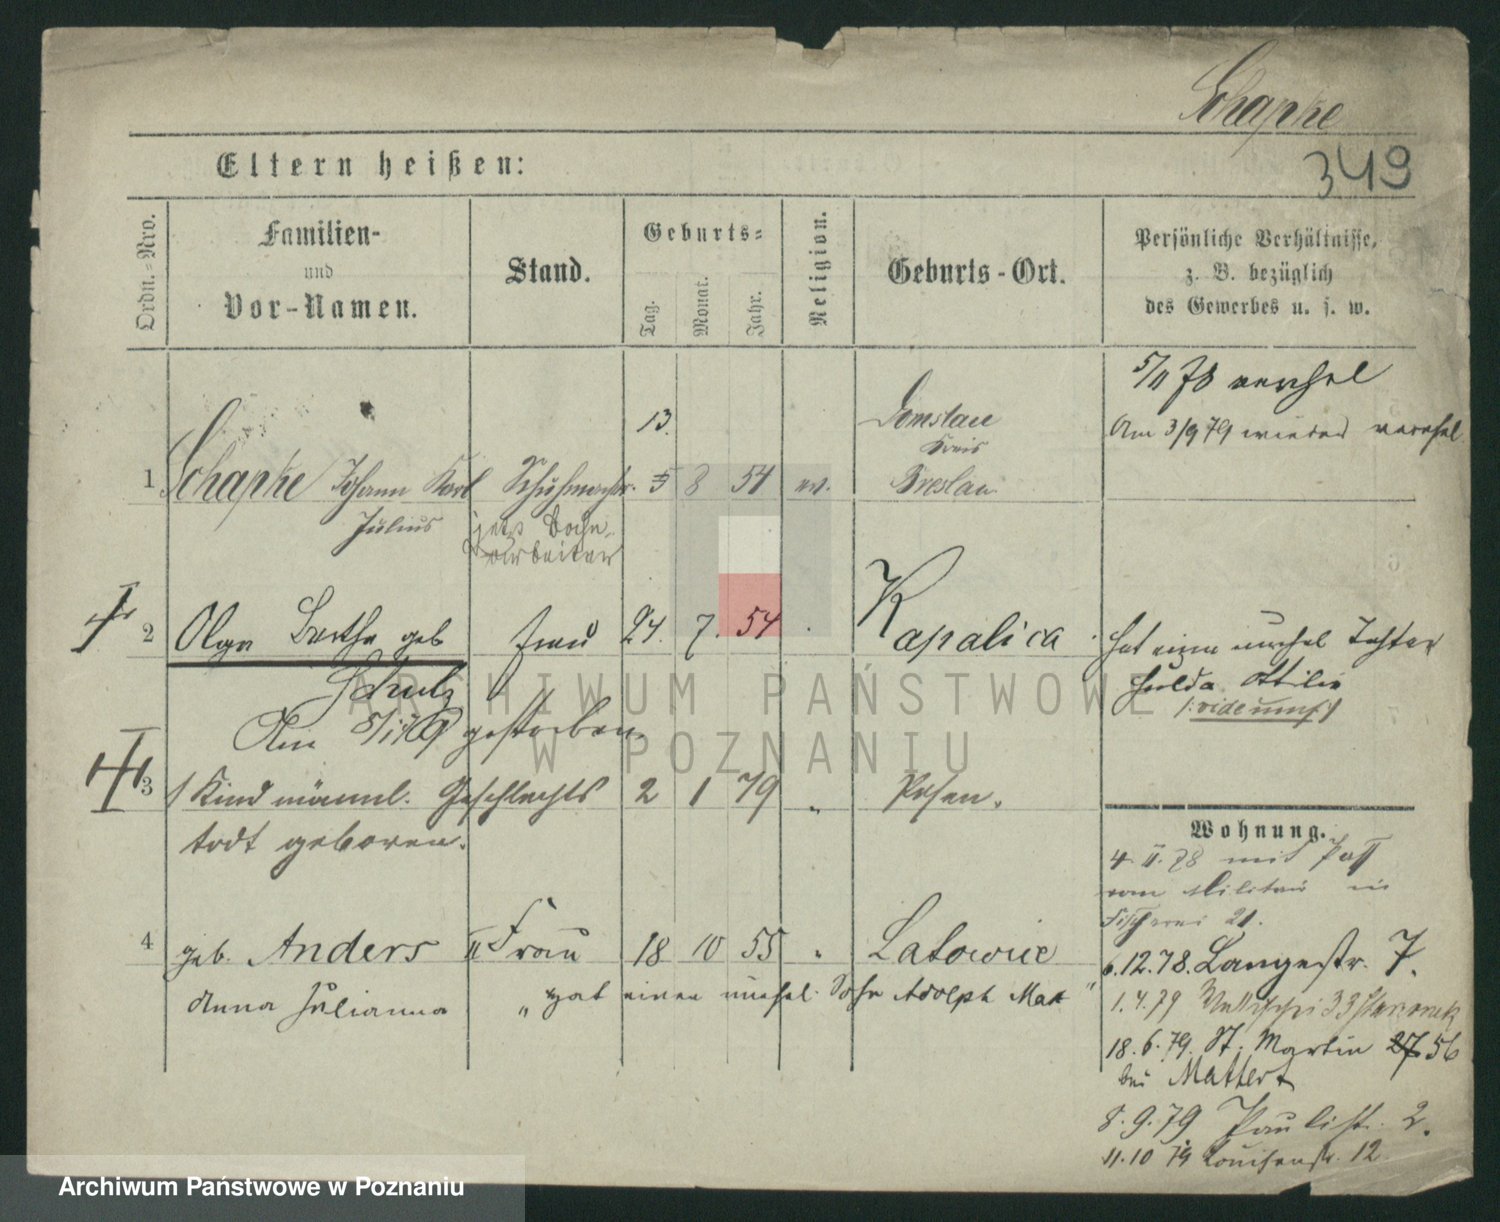 Schapke
349
Eltern heißen:
Ordn.-Nro.
Familien-
und
Vor-Namen.
Stand.
Geburts-
Tag.
Monat.
Jahr.
Religion.
Geburts-Ort.
Persönliche Verhältnisse,
z. B. bezüglich
des Gewerbes u. s. w.
5/11 78 verehel
Am 3/9 79 wieder verehel
13.
Domslau
Kreis
1 Schapke Johann Karl Schuhmachr. 5 8 54 ev. Breslau
Julius jetzt Bahn-
arbeiter
2 Olga Bertha geb Frau 24. 7. 54 Kapalica
Schulz
hat eine unehel Tochter
Hulda Ottilie
Am 5/1 79 gestorben.
3 1 Kind männl. Geschlechts 2 1 79 " Posen.
todt geboren.
Wohnung.
4. II. 78 mit Paß
vom Militair in
Fischerei 21.
4 geb. Anders II Frau 18 10 55 " Latowice
Anna Julianna " hat einen unehel. Sohn Adolph
6.12.78. Langestr. 7.
1.4.79 Wallischei 33
18.6.79. St. Martin 27 56
bei Mattert
8.9.79 Paulist. 2.
11.10 79 Louisenstr. 12
ARCHIWUM PAŃSTWOWE
W POZNANIU
Archiwum Państwowe w Poznaniu